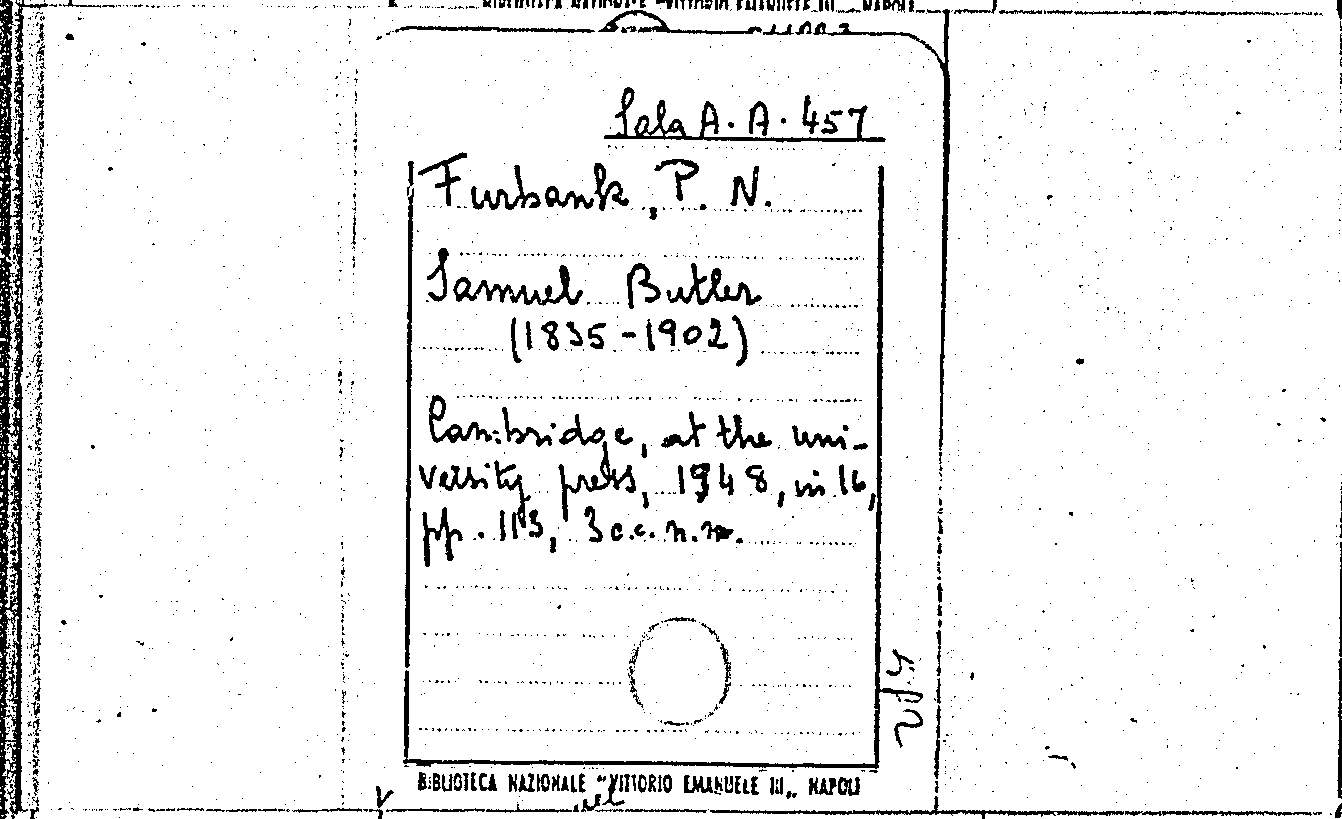 BIBLIOTECA NAZIONALE "VITTORIO EMANUELE III„ NAPOLI
Sala A. A. 457
Furbank, P. N.
Samuel Butler
(1835-1902)
Cambridge, at the uni-
versity press, 1948, in 16,
pp. 113, 3 c.c. n.n.
BIBLIOTECA NAZIONALE "VITTORIO EMANUELE III„ NAPOLI